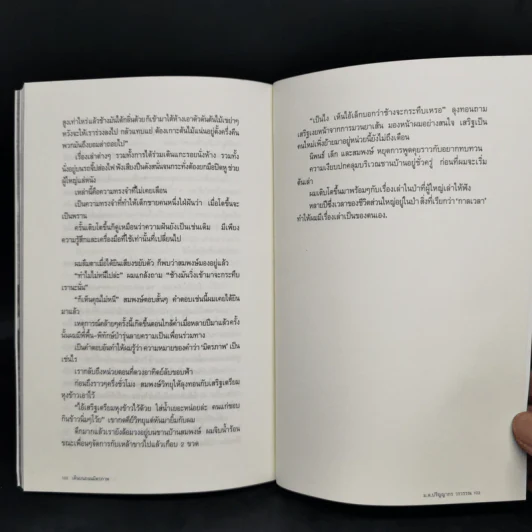 สูงเท่าไหร่แล้วช้างมันได้กลิ่นด้วย ก็เข้ามาใต้ห้างเอาตัวดันต้นไม้เขย่าๆ
หวังจะให้เราร่วงลงไป กลัวแทบแย่ ต้องเกาะต้นไม้แน่นอยู่ตั้งครึ่งคืน
พวกมันถึงยอมล่าถอยไป"
เรื่องเล่าต่างๆ รวมทั้งการได้ร่วมเดินแกะรอยนั่งห้าง รวมทั้ง
ผู้ใหญ่แต่หนัง
เหล่านี้คือความทรงจำที่ไม่เคยเลือน
เป็นความทรงจำที่ทำให้เด็กชายคนหนึ่งใฝ่ฝันว่า เมื่อโตขึ้นจะ
เป็นพราน
ครั้นเติบโตขึ้นก็ดูเหมือนว่าความฝันยังเป็นเช่นเดิม มีเพียง
ความรู้สึกและเครื่องมือที่ใช้เท่านั้นที่เปลี่ยนไป
ผมลืมตาเมื่อได้ยินเสียงขยับตัว ก็พบว่าสมพงษ์มองอยู่แล้ว
"ทำไมไม่หนีไปล่ะ" ผมแกล้งถาม "ช้างมันวิ่งเข้ามาจะกระทืบ
เรานะนั่น"
"ก็เห็นคุณไม่หนี" สมพงษ์ตอบสั้นๆ คำตอบเช่นนี้ผมเคยได้ยิน
มาแล้ว
เหตุการณ์คล้ายๆครั้งนี้เกิดขึ้นตอนใกล้ค่ำเมื่อหลายปีมาแล้วครั้ง
นั้นผมมีพี่ตื่น-พิทักษ์ป่ารุ่นลายครามเป็นเพื่อนร่วมทาง
เป็นคำตอบอันทำให้ผมรู้ว่า ความหมายของคำว่า 'มิตรภาพ' เป็น
เช่นไร
เรากลับถึงหน่วยตอนที่ดวงอาทิตย์ลับขอบฟ้า
ก่อนถึงราวๆครึ่งชั่วโมง สมพงษ์วิทยุให้ลุงทอนกับเสริฐเตรียม
หุงข้าวเอาไว้
"ไอ้เสริฐเตรียมหุงข้าวไว้ด้วย ใส่น้ำเยอะหน่อยล่ะ คนแก่ชอบ
กินข้าวนิ่มๆโว้ย" เขากดคีย์วิทยุแต่หันมายิ้มกับผม
ดึกมากแล้วเรายังล้อมวงอยู่บนชานบ้านสมพงษ์ ผมจิบน้ำร้อน
ขณะเพื่อนๆจัดการกับเหล้าขาวไปแล้วเกือบ ๕ ขวด
"เป็นไง เห็นไอ้เล็กบอกว่าช้างจะกระทืบเหรอ" ลุงทอนถาม
เสริฐเงยหน้าจากการมวนยาเส้น มองหน้าผมอย่างสนใจ เสริฐเป็น
คนใหม่เพิ่งย้ายมาอยู่หน่วยนี้ยังไม่ถึงเดือน
นิพนธ์ เล็ก และสมพงษ์ หยุดการพูดคุยราวกับอยากทบทวน
ความเงียบปกคลุมบริเวณชานบ้านอยู่ชั่วครู่ ก่อนที่ผมจะเริ่ม
ต้นเล่า
ผมเติบโตขึ้นมาพร้อมๆกับเรื่องเล่าในป่าที่ผู้ใหญ่เล่าให้ฟัง
หลายปีซึ่งเวลาของชีวิตส่วนใหญ่อยู่ในป่า สิ่งที่เรียกว่า 'กาลเวลา'
ทำให้ผมมีเรื่องเล่าเป็นของตนเอง.
ม.ล.ปริญญากร วรวรรณ